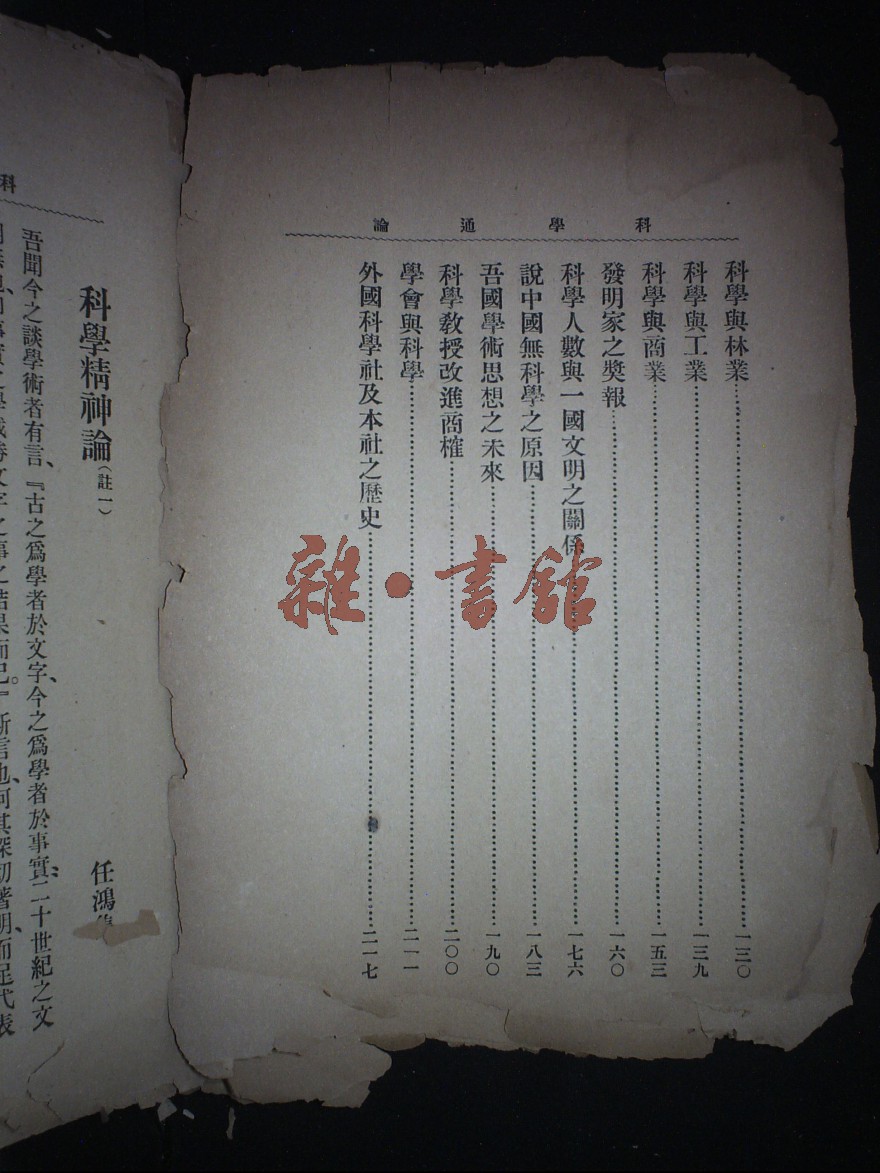 科學通論
科學與林業 一三〇
科學與工業 一三九
科學與商業 一五三
發明家之獎報 一六〇
科學人數與一國文明之關係 一七六
說中國無科學之原因 一八三
吾國學術思想之未來 一九〇
科學教授改進商榷 二〇〇
學會與科學 二一一
外國科學社及本社之歷史 二一七
雜·書館
科
科學精神論(註一)
任鴻
吾聞今之談學術者有言、『古之爲學者於文字、今之爲學者於事實、二十世紀之文
文字之事之結果而已。』斯言也、何其深切著明、而足代表